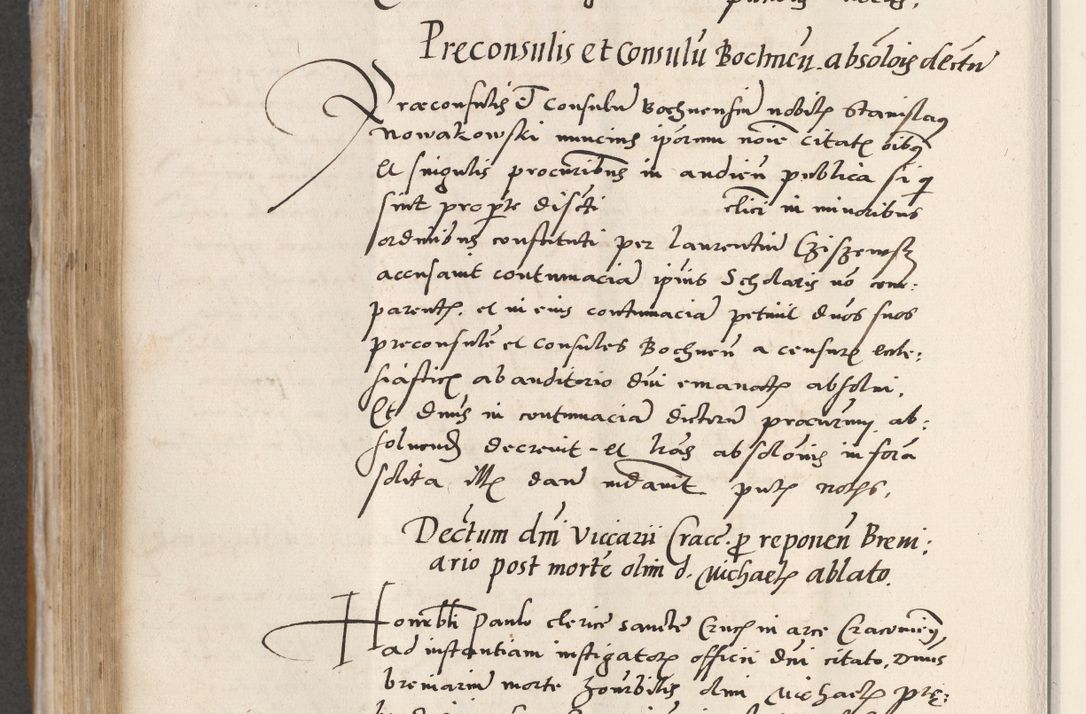 Preconsulis et Consulū Bochneñ. absolōis dectū
Præconsulis et Consulū Bochnensiū nobilis Stanislaus
Nowakowski nuncius ip̄orum noīe citatis oībus
et singulis procūribus in audieñ publica si q̄
sint prop̄te discti cl̄ici in minoribus
ordinibus constituti per Laurentiū Cziszewsk
accusavit contumaciā ip̄ius Scholaris nō com:
parentis, et in eius contumaciā petivit duos suos
preconsulē et consules Bochneñ a censuris eccle:
siasticis ab auditorio dñi emanatis absolvi.
Et dnus in contumaciā dictorū procurm̄. ab:
solvend decrevit et l̄ras absolōnis in forā
solita ill̄ dare mādavit putis notis.
Dectum dñi Viccarii Cracc. p̄ reponeñ Brevi:
ario post morte olim d. Michaelis ablato.
Honorbli Paulo clerico sanctæ Crucis in arce Cracoviens
ad instantiam instigatoris officii dñi citato, Dnus
breviariū morte honorbilis olim Michaelis pre: